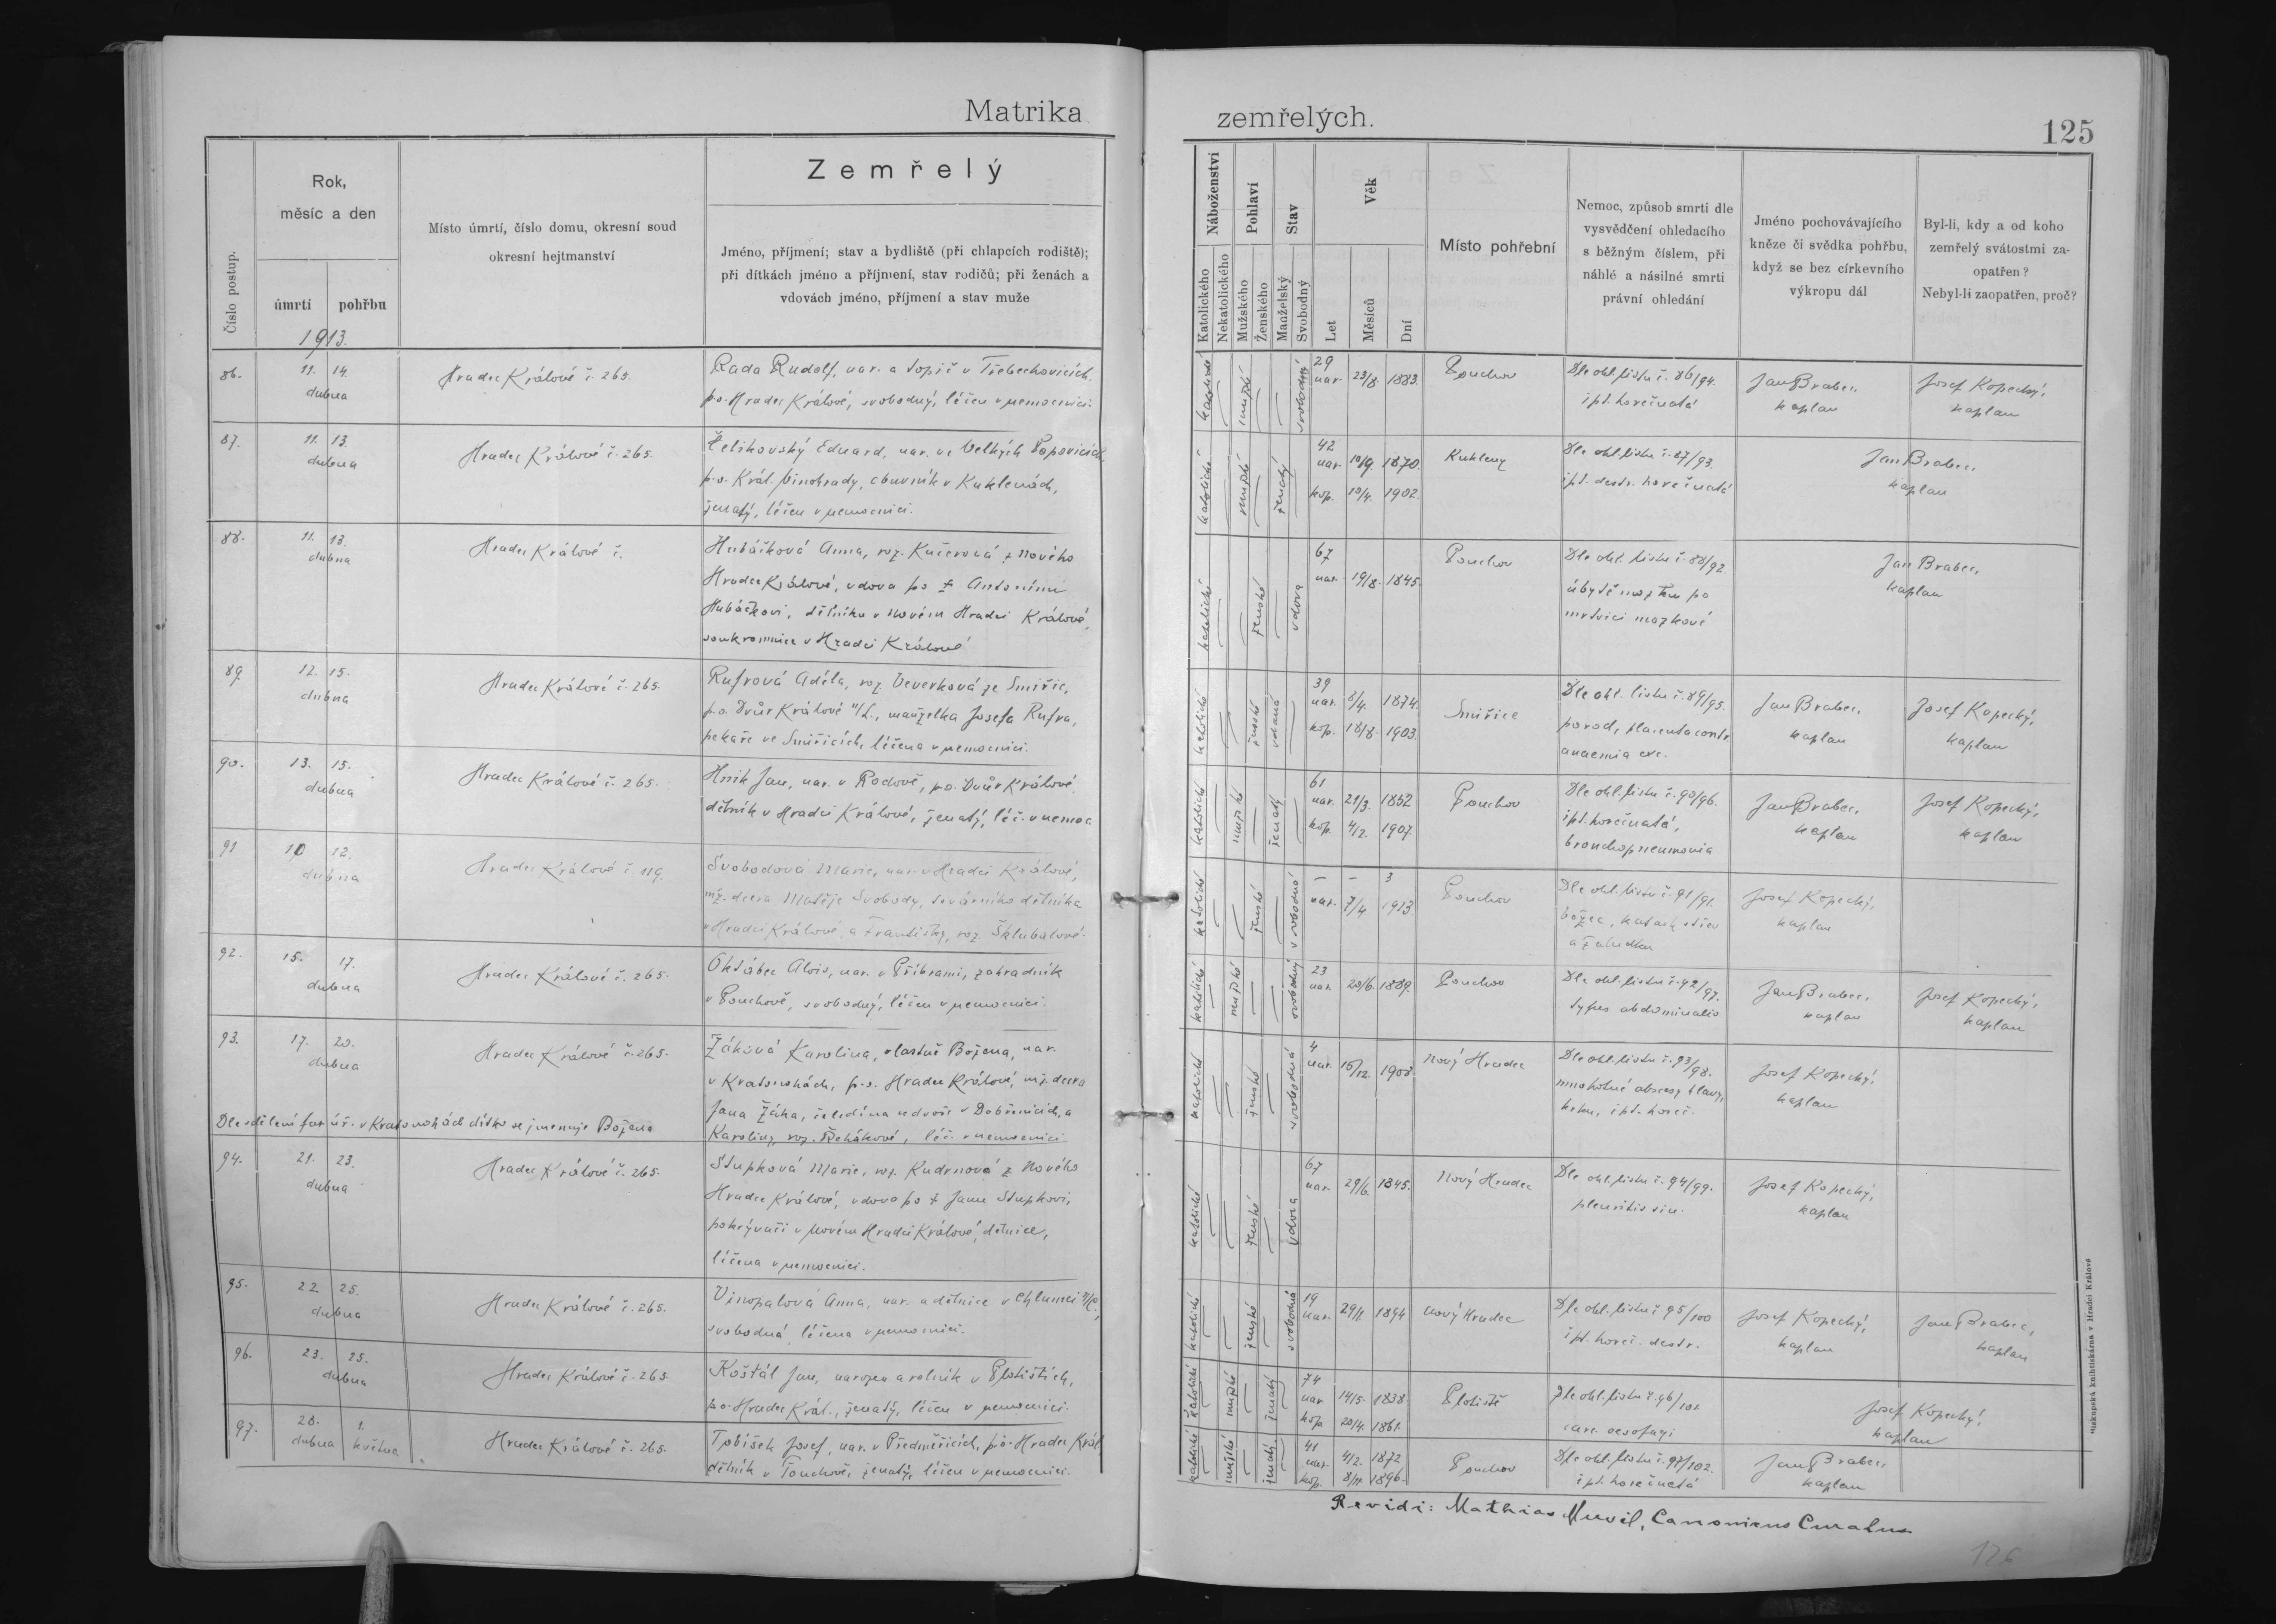 Matrika
zemřelých.
125
Číslo postup.
Rok,
měsíc a den
úmrtí
pohřbu
1913.
Místo úmrtí, číslo domu, okresní soud
okresní hejtmanství
Zemřelý
Jméno, příjmení; stav a bydliště (při chlapcích rodiště);
při dítkách jméno a příjmení, stav rodičů; při ženách a
vdovách jméno, příjmení a stav muže
Náboženství
Katolického
Nekatolického
Pohlaví
Mužského
Ženského
Stav
Manželský
Svobodný
Věk
Let
Měsíců
Dní
Místo pohřební
Nemoc, způsob smrti dle
vysvědčení ohledacího
s běžným číslem, při
náhlé a násilné smrti
právní ohledání
Jméno pochovávajícího
kněze či svědka pohřbu,
když se bez církevního
výkropu dál
Byl-li, kdy a od koho
zemřelý svátostmi za-
opatřen?
Nebyl-li zaopatřen, proč?
86.
11. 14.
dubna
Hradec Králové č. 265.
Rada Rudolf, nar. a topič v Třebechovicích,
p.o. Hradec Králové, svobodný, léčen v nemocnici.
katolické
mužské
svobodný
29
nar. 23/8. 1883.
Pouchov
Dle ohl. listu č. 86/94.
ipt. horečnatá
Jan Brabec,
kaplan
Josef Kopecký,
kaplan
87.
11. 13.
dubna
Hradec Králové č. 265.
Čelikovský Eduard, nar. ve Velkých Popovicích,
p.o. Král. Vinohrady, obuvník v Kuklenách,
ženatý, léčen v nemocnici.
katolické
mužské
ženatý
42
nar. 10/9. 1870.
kop. 10/4. 1902.
Kukleny
Dle ohl. listu č. 87/93.
ipt. destr. horečnatá
Jan Brabec,
kaplan
88.
11. 13.
dubna
Hradec Králové č.
Hubáčková Anna, roz. Kučerová z Nového
Hradce Králové, vdova po † Antonínu
Hubáčkovi, dělníku v Novém Hradci Králové,
soukromnice v Hradci Králové
katolické
ženské
vdova
67
nar. 19/8. 1845.
Pouchov
Dle ohl. listu č. 88/92.
úbytě mozku po
mrtvici mozkové
Jan Brabec,
kaplan
89.
12. 15.
dubna
Hradec Králové č. 265.
Rufrová Adéla, roz. Veverková ze Smiřic,
p.o. Dvůr Králové n/L., manželka Josefa Rufra,
pekaře ve Smiřicích, léčena v nemocnici.
katolické
ženské
vdaná
39
nar. 8/4. 1874.
kop. 18/8. 1903.
Smiřice
Dle ohl. listu č. 89/95.
porod, placenta contr.
anaemia exc.
Jan Brabec,
kaplan
Josef Kopecký,
kaplan
90.
13. 15.
dubna
Hradec Králové č. 265.
Hnik Jan, nar. v Rodově, p.o. Dvůr Králové
dělník v Hradci Králové, ženatý, léč. v nemoc.
katolické
mužské
ženatý
61
nar. 21/3. 1852
kop. 4/2. 1907.
Pouchov
Dle ohl. listu č. 90/96.
ipt. horečnatá,
bronchopneumonia
Jan Brabec,
kaplan
Josef Kopecký,
kaplan
91
10 12.
dubna
Hradec Králové č. 119.
Svobodová Marie, nar. v Hradci Králové,
mž. dcera Matěje Svobody, továrního dělníka
v Hradci Králové, a Františky, roz. Šklubalové.
katolické
ženské
svobodná
– – 3
nar. 7/4 1913
Pouchov
Dle ohl. listu č. 91/91.
božec, katarh střev
a žaludku
Josef Kopecký,
kaplan
92.
15. 17.
dubna
Hradec Králové č. 265.
Oktábec Alois, nar. v Příbrami, zahradník
v Pouchově, svobodný, léčen v nemocnici.
katolické
mužské
svobodný
23
nar. 20/6. 1889.
Pouchov
Dle ohl. listu č. 92/97.
tyfus abdominalis
Jan Brabec,
kaplan
Josef Kopecký,
kaplan
93.
17. 20.
dubna
Hradec Králové č. 265.
Žáková Karolina, vlastně Božena, nar.
v Kratonohách, p.o. Hradec Králové, mž. dcera
Jana Žáka, čeledína u dvora v Dobřenicích, a
Karoliny, roz. Řehákové, léč. v nemocnici
Dle sdělení far. úř. v Kratonohách dítko se jmenuje Božena
katolické
ženské
svobodná
4
nar. 15/12. 1908.
Nový Hradec
Dle ohl. listu č. 93/98.
mnohotné abscesy hlavy,
krku, ipt. horeč.
Josef Kopecký,
kaplan
94.
21. 23.
dubna
Hradec Králové č. 265.
Stupková Marie, roz. Kudrnová z Nového
Hradce Králové, vdova po † Janu Stupkovi,
pokrývači v Novém Hradci Králové, dělnice,
léčena v nemocnici.
katolické
ženské
vdova
67
nar. 29/6. 1845.
Nový Hradec
Dle ohl. listu č. 94/99.
pleuritis sin.
Josef Kopecký,
kaplan
95.
22. 25.
dubna
Hradec Králové č. 265.
Vinopalová Anna, nar. a dělnice v Chlumci n/C.,
svobodná, léčena v nemocnici.
katolické
ženské
svobodná
19
nar. 29/1. 1894
Nový Hradec
Dle ohl. listu č. 95/100
ipt. horeč. destr.
Josef Kopecký,
kaplan
Jan Brabec,
kaplan
96.
23. 25.
dubna
Hradec Králové č. 265
Koštál Jan, narozen a rolník v Plotištích,
p.o. Hradec Král., ženatý, léčen v nemocnici.
katolické
mužské
ženatý
74
nar 14/5. 1838.
kop. 20/4. 1861.
Plotiště
Dle ohl. listu č. 96/101
carc. oesofagi
Josef Kopecký,
kaplan
97.
28. 1.
dubna května
Hradec Králové č. 265.
Tobišek Josef, nar. v Předměřicích, p.o. Hradec Král.
dělník v Pouchově, ženatý, léčen v nemocnici.
katolické
mužské
ženatý
41
nar. 4/2. 1872
kop. 8/11. 1896.
Pouchov
Dle ohl. listu č. 97/102.
ipt. horečnatá
Jan Brabec,
kaplan
Revidi: Mathias Musil, Canonicus Curatus
Biskupská knihtiskárna v Hradci Králové
126